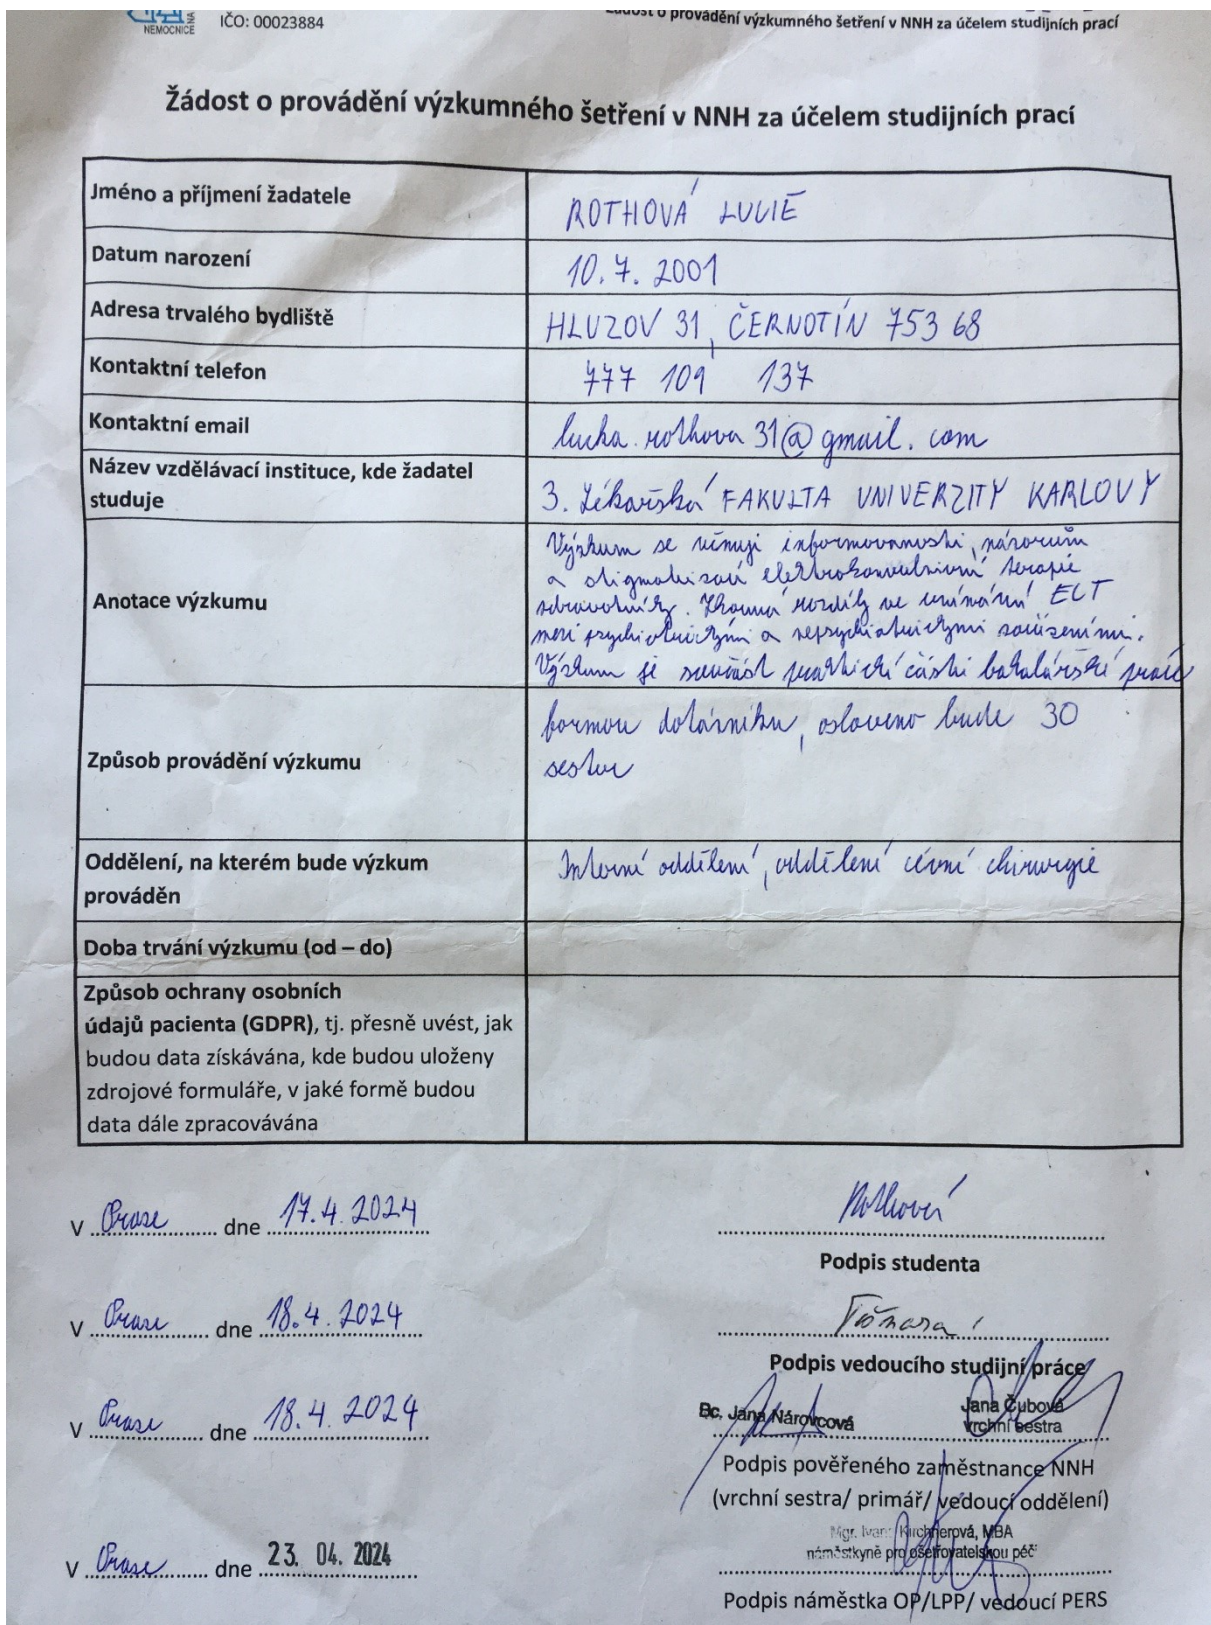 NEMOCNICE
NA
IČO: 00023884
Žádost o provádění výzkumného šetření v NNH za účelem studijních prací
Žádost o provádění výzkumného šetření v NNH za účelem studijních prací
Jméno a příjmení žadatele
ROTHOVÁ LUCIE
Datum narození
10. 7. 2001
Adresa trvalého bydliště
HLUZOV 31, ČERNOTÍN 753 68
Kontaktní telefon
777 109 137
Kontaktní email
lucka.rothova31@gmail.com
Název vzdělávací instituce, kde žadatel
studuje
3. Lékařská FAKULTA UNIVERZITY KARLOVY
Anotace výzkumu
Výzkum se věnuji informovanosti, názorům
a stigmatizaci elektrokonvulzivní terapie
zdravotníky. Zkoumá rozdíly ve vnímání ECT
mezi psychiatrickými a nepsychiatrickými zařízeními.
Výzkum je součást praktické části bakalářské práce
Způsob provádění výzkumu
formou dotazníku, osloveno bude 30
sester
Oddělení, na kterém bude výzkum
prováděn
Interní oddělení, oddělení cévní chirurgie
Doba trvání výzkumu (od – do)
Způsob ochrany osobních
údajů pacienta (GDPR), tj. přesně uvést, jak
budou data získávána, kde budou uloženy
zdrojové formuláře, v jaké formě budou
data dále zpracovávána
V Praze dne 17.4.2024
Rothová
Podpis studenta
V Praze dne 18.4.2024
Podpis vedoucího studijní práce
V Praze dne 18.4.2024
Bc. Jana Nárovcová
Jana Čubová
vrchní sestra
Podpis pověřeného zaměstnance NNH
(vrchní sestra/ primář/ vedoucí oddělení)
Mgr. Ivana Kirchnerová, MBA
náměstkyně pro ošetřovatelskou péči
V Praze dne 23. 04. 2024
Podpis náměstka OP/LPP/ vedoucí PERS